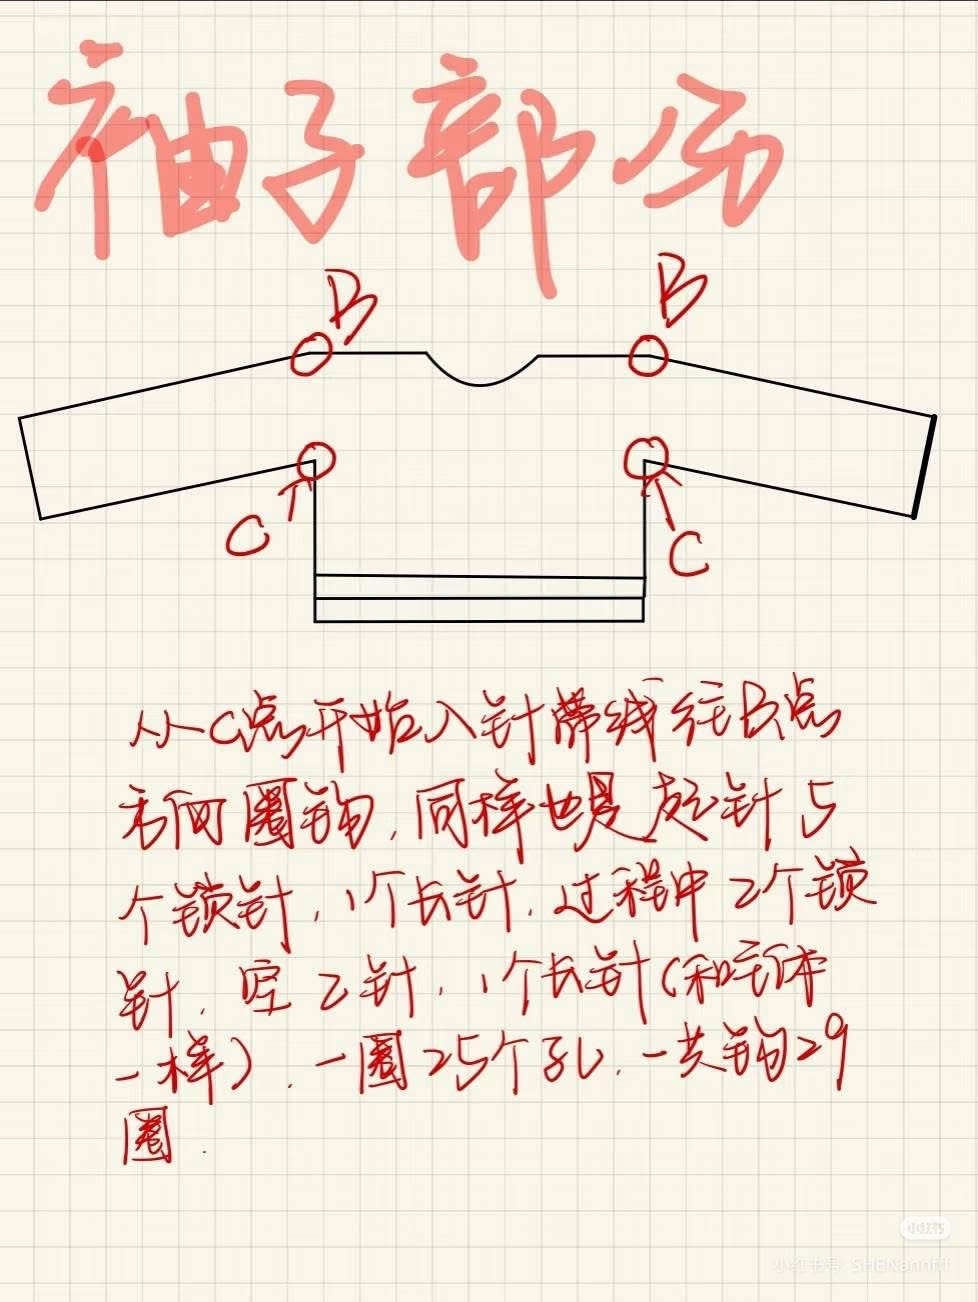 袖子部分
B
B
C
C
从C点开始入针带线往B点
方向圈钩,同样也是起针5
个锁针,1个长针,过程中2个锁
针,空2针,1个长针(和主体
一样),一圈25个孔,一共钩29
圈.
小红书
小红书号: